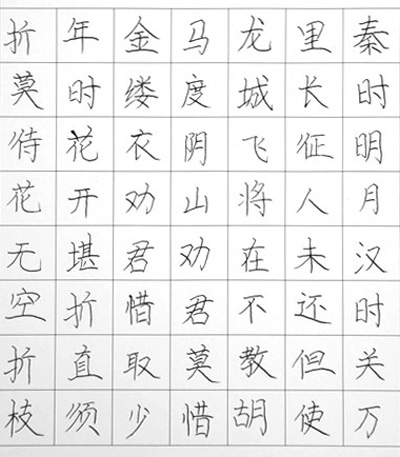 秦时明月汉时关万
里长征人未还但使
龙城飞将在不教胡
马度阴山劝君莫惜
金缕衣劝君惜取少
年时花开堪折直须
折莫侍花无空折枝